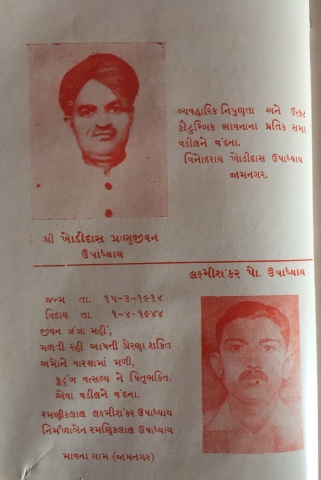 વ્યવહારિક નિપુણતા અને ઉત્કટ
કૌટુમ્બિક ભાવનાના પ્રતિક સમા
વડીલને વંદના.
વિનોદરાય ખોડીદાસ ઉપાધ્યાય
જામનગર.
શ્રી ખોડીદાસ પ્રાણજીવન
ઉપાધ્યાય
લક્ષ્મીશંકર પો. ઉપાધ્યાય
જન્મ તા. ૧૫-૩-૧૯૧૪
વિદાય તા. ૧-૪-૧૯૪૪
જીવન ઝંગા મહીં,
મળતી રહી આપની પ્રેરણા શક્તિ
અમોને વારસામાં મળી,
કુટુંબ વત્સલ્ય ને પિતૃભકિત.
એવા વડીલને વંદના.
રમણીકલાલ લક્ષ્મીશંકર ઉપાધ્યાય
નિર્મળાબેન રમણિકલાલ ઉપાધ્યાય
માવના ગામ (જામનગર)